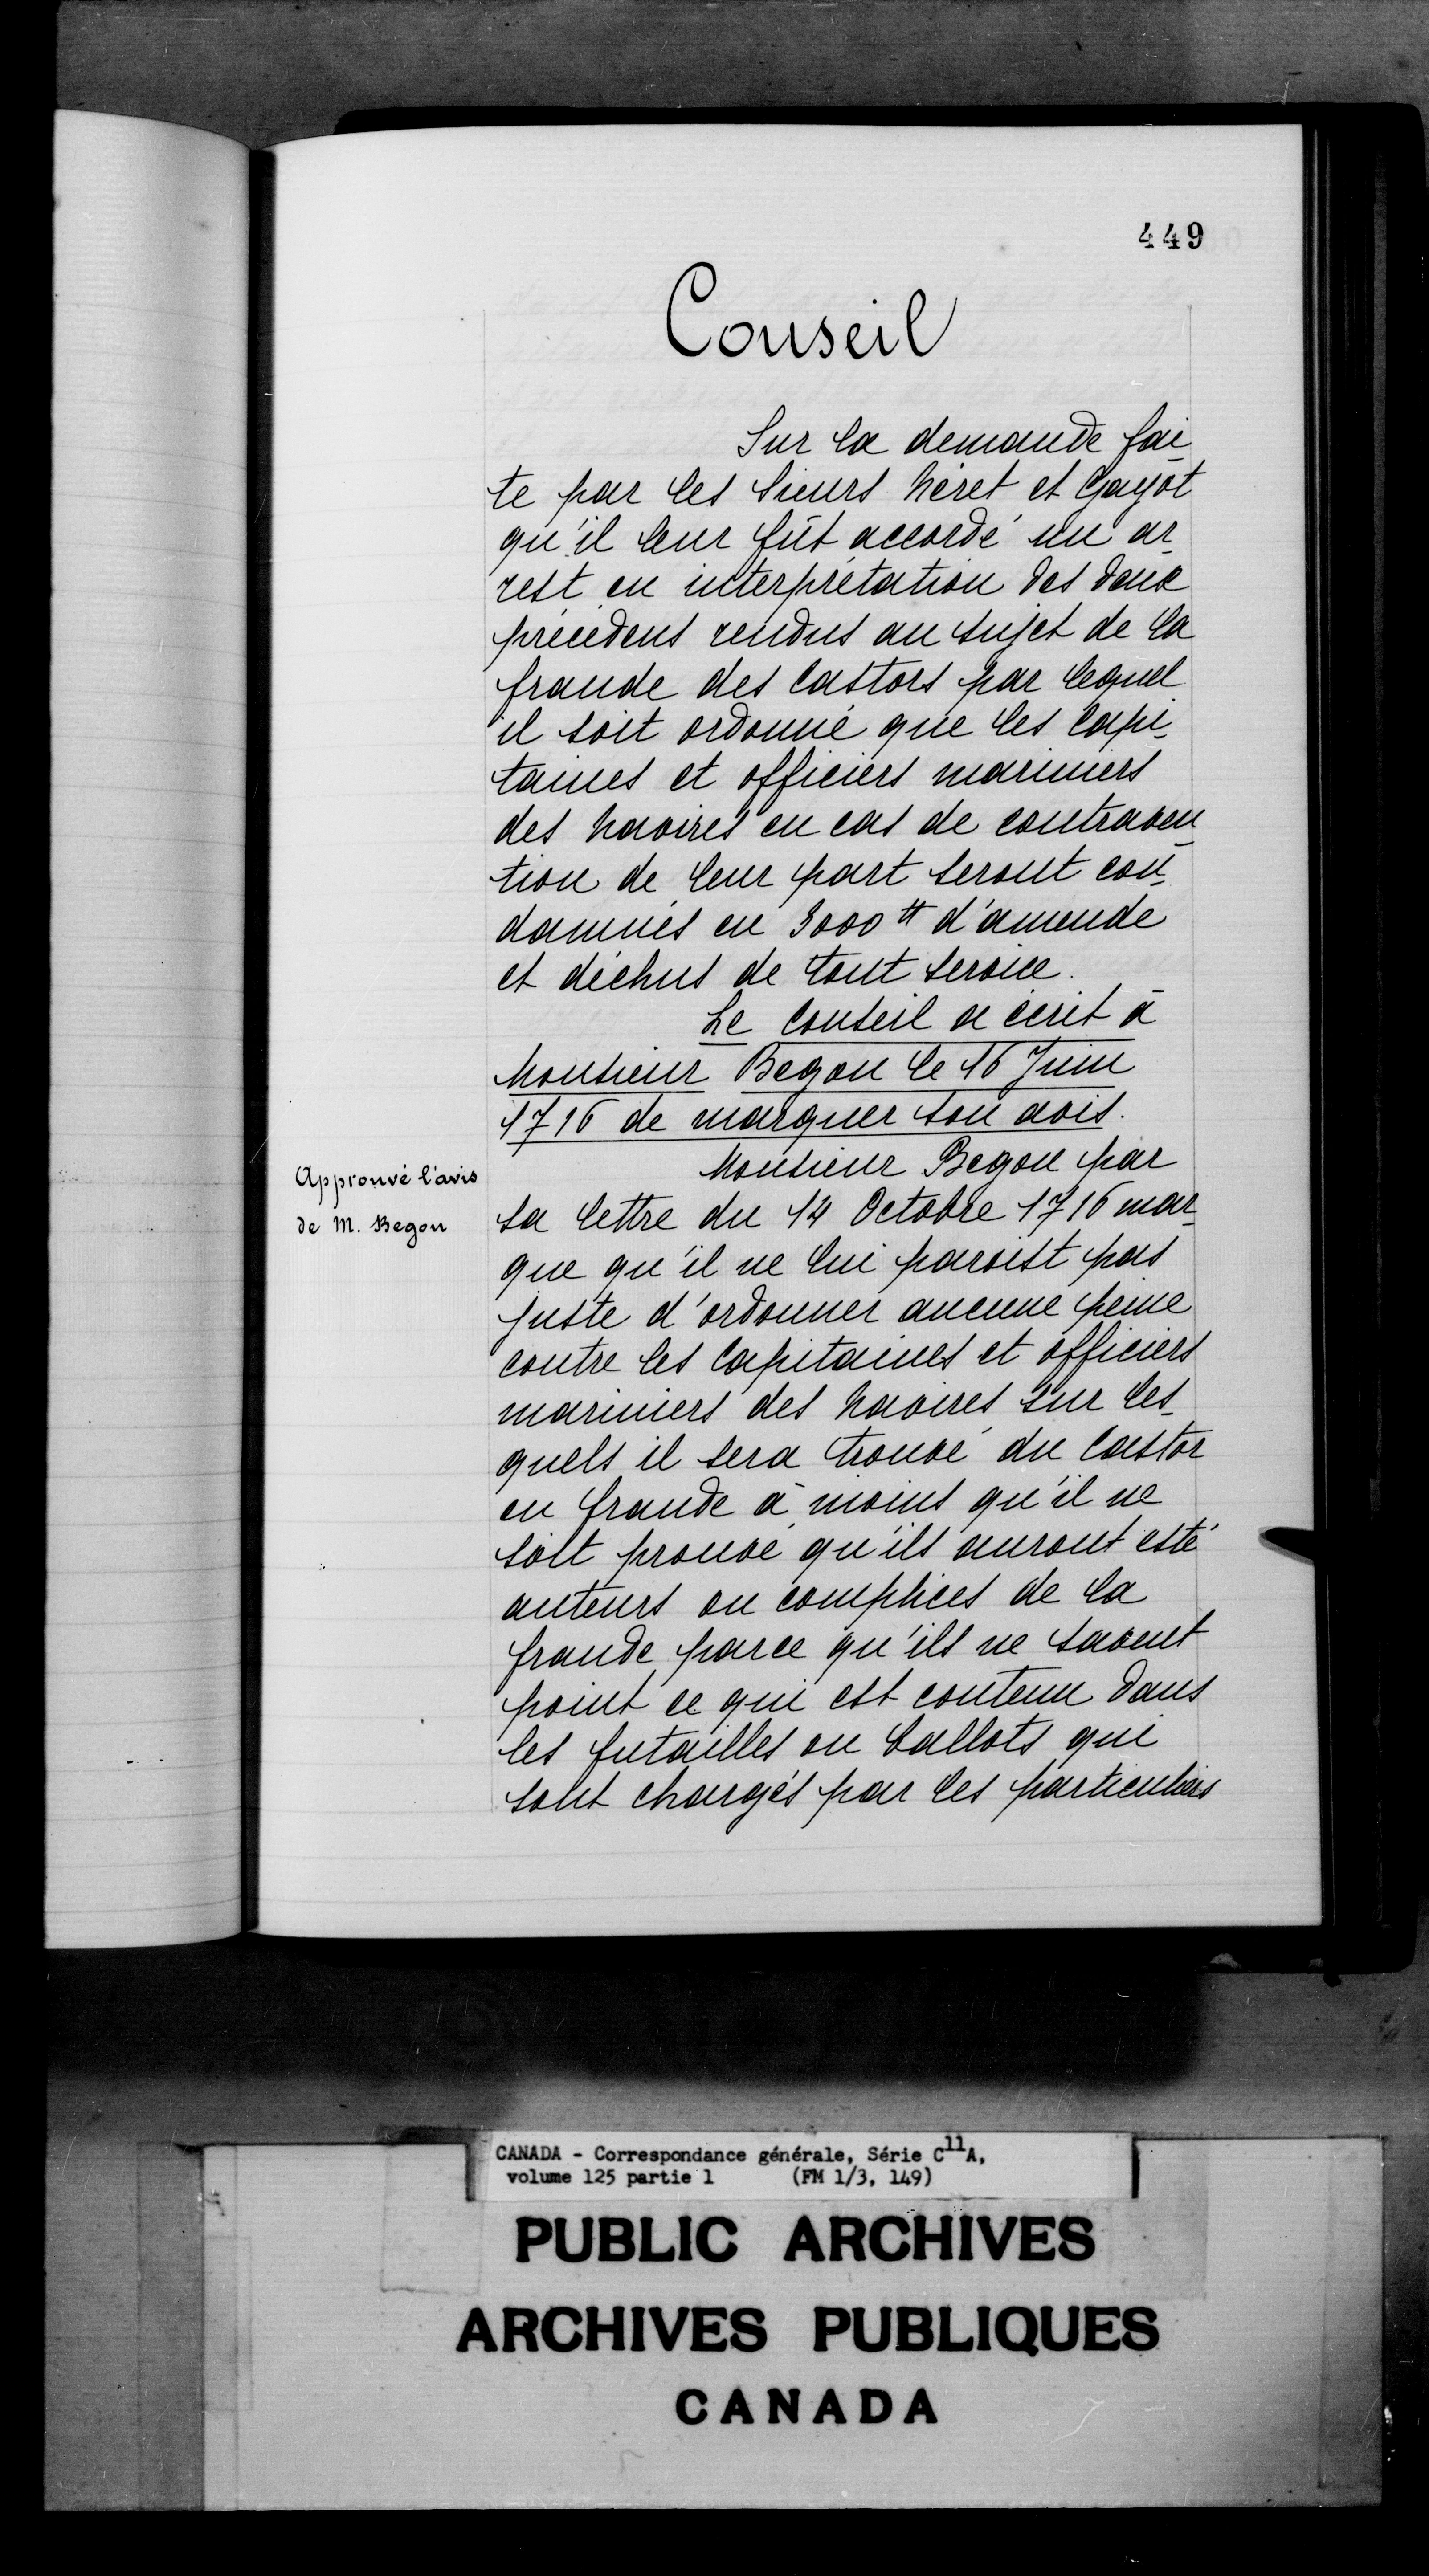 449
Conseil
Sur la demande fai-
te par les Sieurs Néret et Gayot
qu'il leur fût accordé un ar-
rest en interprétation des deux
précédens rendus au sujet de la
fraude des Castors par lequel
il soit ordonné que les Capi-
taines et officiers mariniers
des Navires en cas de contraven-
tion de leur part seront con-
damnés en 3000 ₶ d'amende
et déchus de tout service.
Le Conseil a écrit à
Monsieur Begon le 16 Juin
1716 de marquer son avis.
Approuvé l'avis
de M. Begon
Monsieur Begon par
sa lettre du 14 Octobre 1716 mar-
que qu'il ne lui paroist pas
juste d'ordonner aucune peine
contre les Capitaines et officiers
mariniers des Navires sur les-
quels il sera trouvé du Castor
en fraude à moins qu'il ne
soit prouvé qu'ils auront esté
auteurs ou complices de la
fraude parce qu'ils ne savent
point ce qui est contenu dans
les futailles ou ballots qui
sont chargés par les particuliers
CANADA - Correspondance générale, Série C11A,
volume 125 partie 1 (FM 1/3, 149)
PUBLIC ARCHIVES
ARCHIVES PUBLIQUES
CANADA